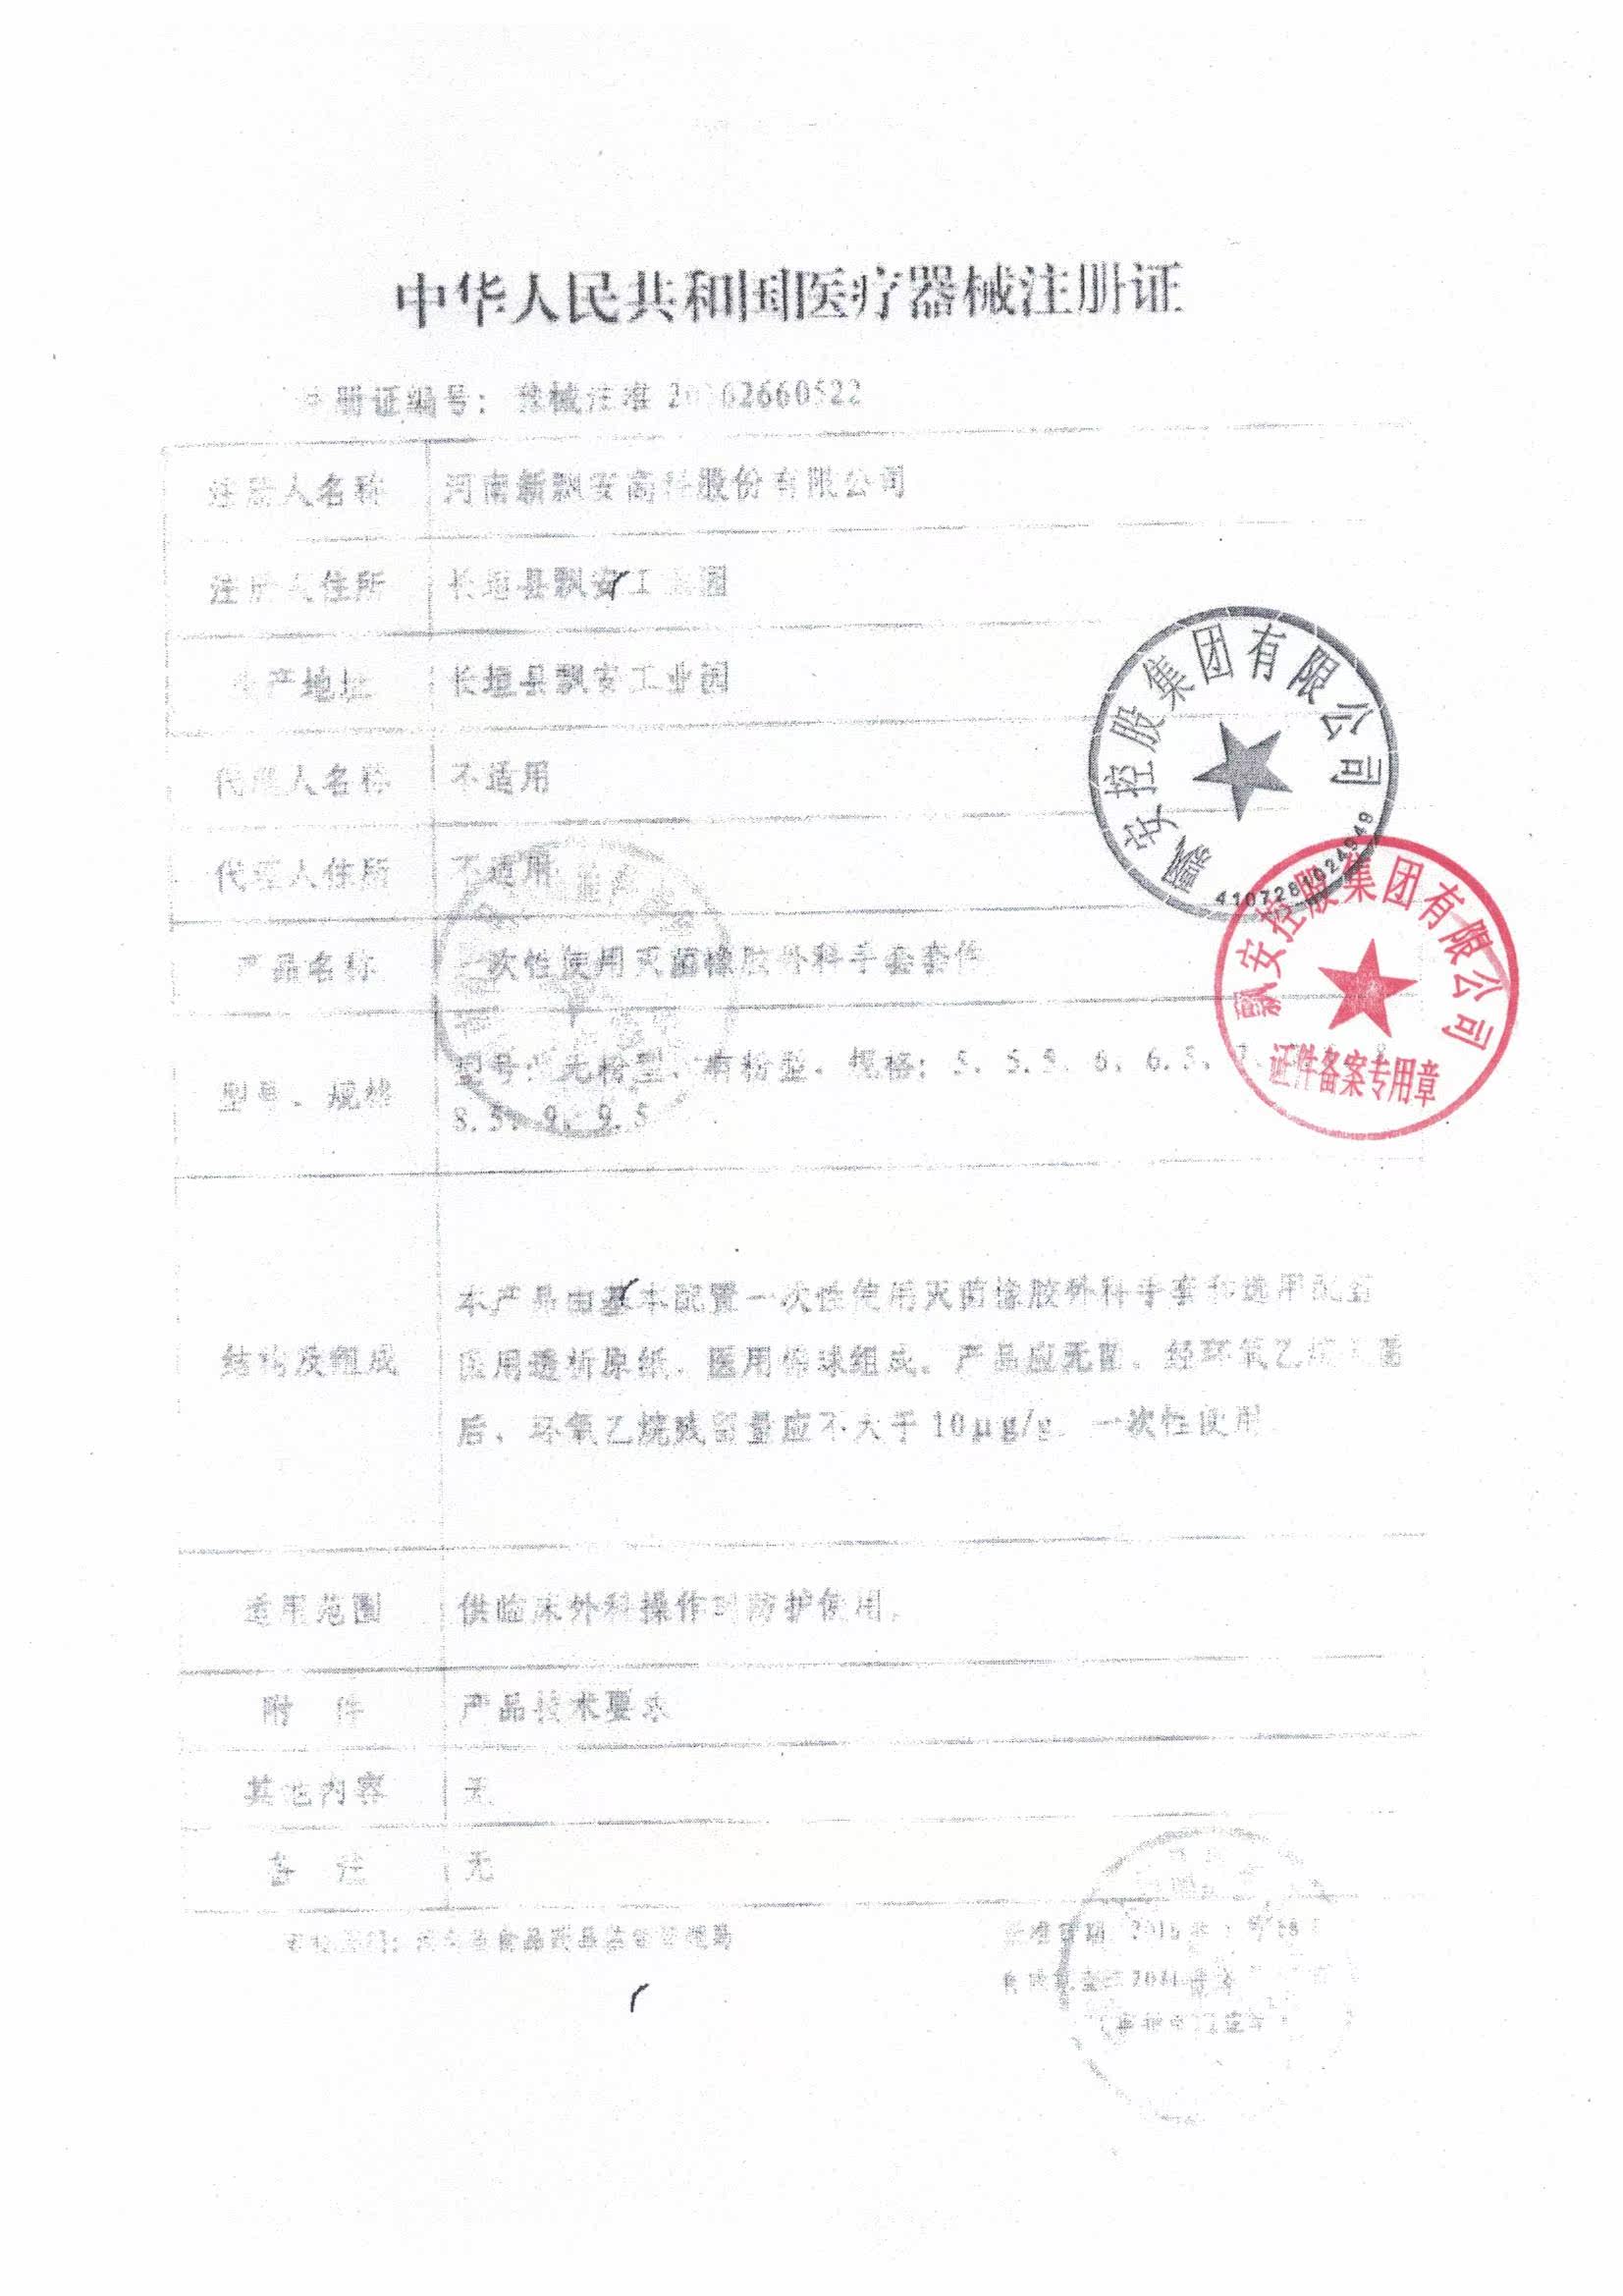 中华人民共和国医疗器械注册证
注册证编号：豫械注准 20162660522
注册人名称 河南新飘安高科股份有限公司
注册人住所 长垣县飘安工业园
生产地址 长垣县飘安工业园
代理人名称 不适用
代理人住所 不适用
产品名称 一次性使用灭菌橡胶外科手套套件
型号、规格 型号：无粉型、有粉型。规格：5、5.5、6、6.5、7、
8.5、9、9.5
结构及组成 本产品由基本配置一次性使用灭菌橡胶外科手套和选用配置
医用透析原纸、医用棉球组成。产品应无菌，经环氧乙烷灭菌
后，环氧乙烷残留量应不大于 10μg/g。一次性使用。
适用范围 供临床外科操作时防护使用。
附 件 产品技术要求
其他内容 无
备 注 无
审批部门：河南省食品药品监督管理局
批准日期
飘安控股集团有限公司
4107281024949
飘安控股集团有限公司
证件备案专用章